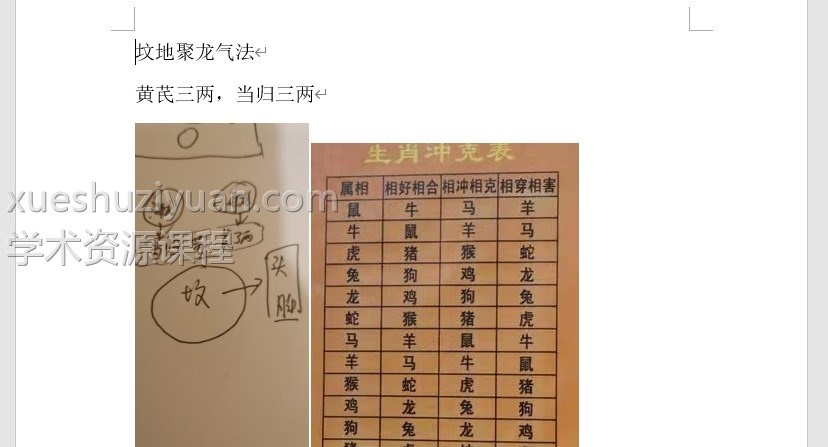 坟地聚龙气法
黄芪三两，当归三两
xueshuziyuan.com
学术资源课程
3两
坟
头
脚
生肖冲克表
属相 相好相合 相冲相克 相穿相害
鼠 牛 马 羊
牛 鼠 羊 马
虎 猪 猴 蛇
兔 狗 鸡 龙
龙 鸡 狗 兔
蛇 猴 猪 虎
马 羊 鼠 牛
羊 马 牛 鼠
猴 蛇 虎 猪
鸡 龙 兔 狗
狗 兔 龙 鸡